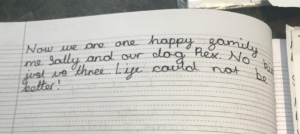 Now we are one happy family
me Sally and our dog Rex. No
just us three life could not be
better!